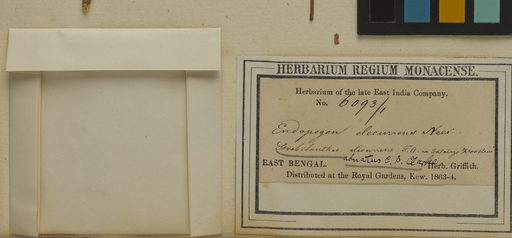 HERBARIUM REGIUM MONACENSE.
Herbarium of the late East India Company.
No. 6093/1
Endopogon decurrens Nees
Strobilanthes decurrens T. A. in
alatus C. B. Clarke
EAST BENGAL. Herb. Griffith.
Distributed at the Royal Gardens, Kew. 1863-4.